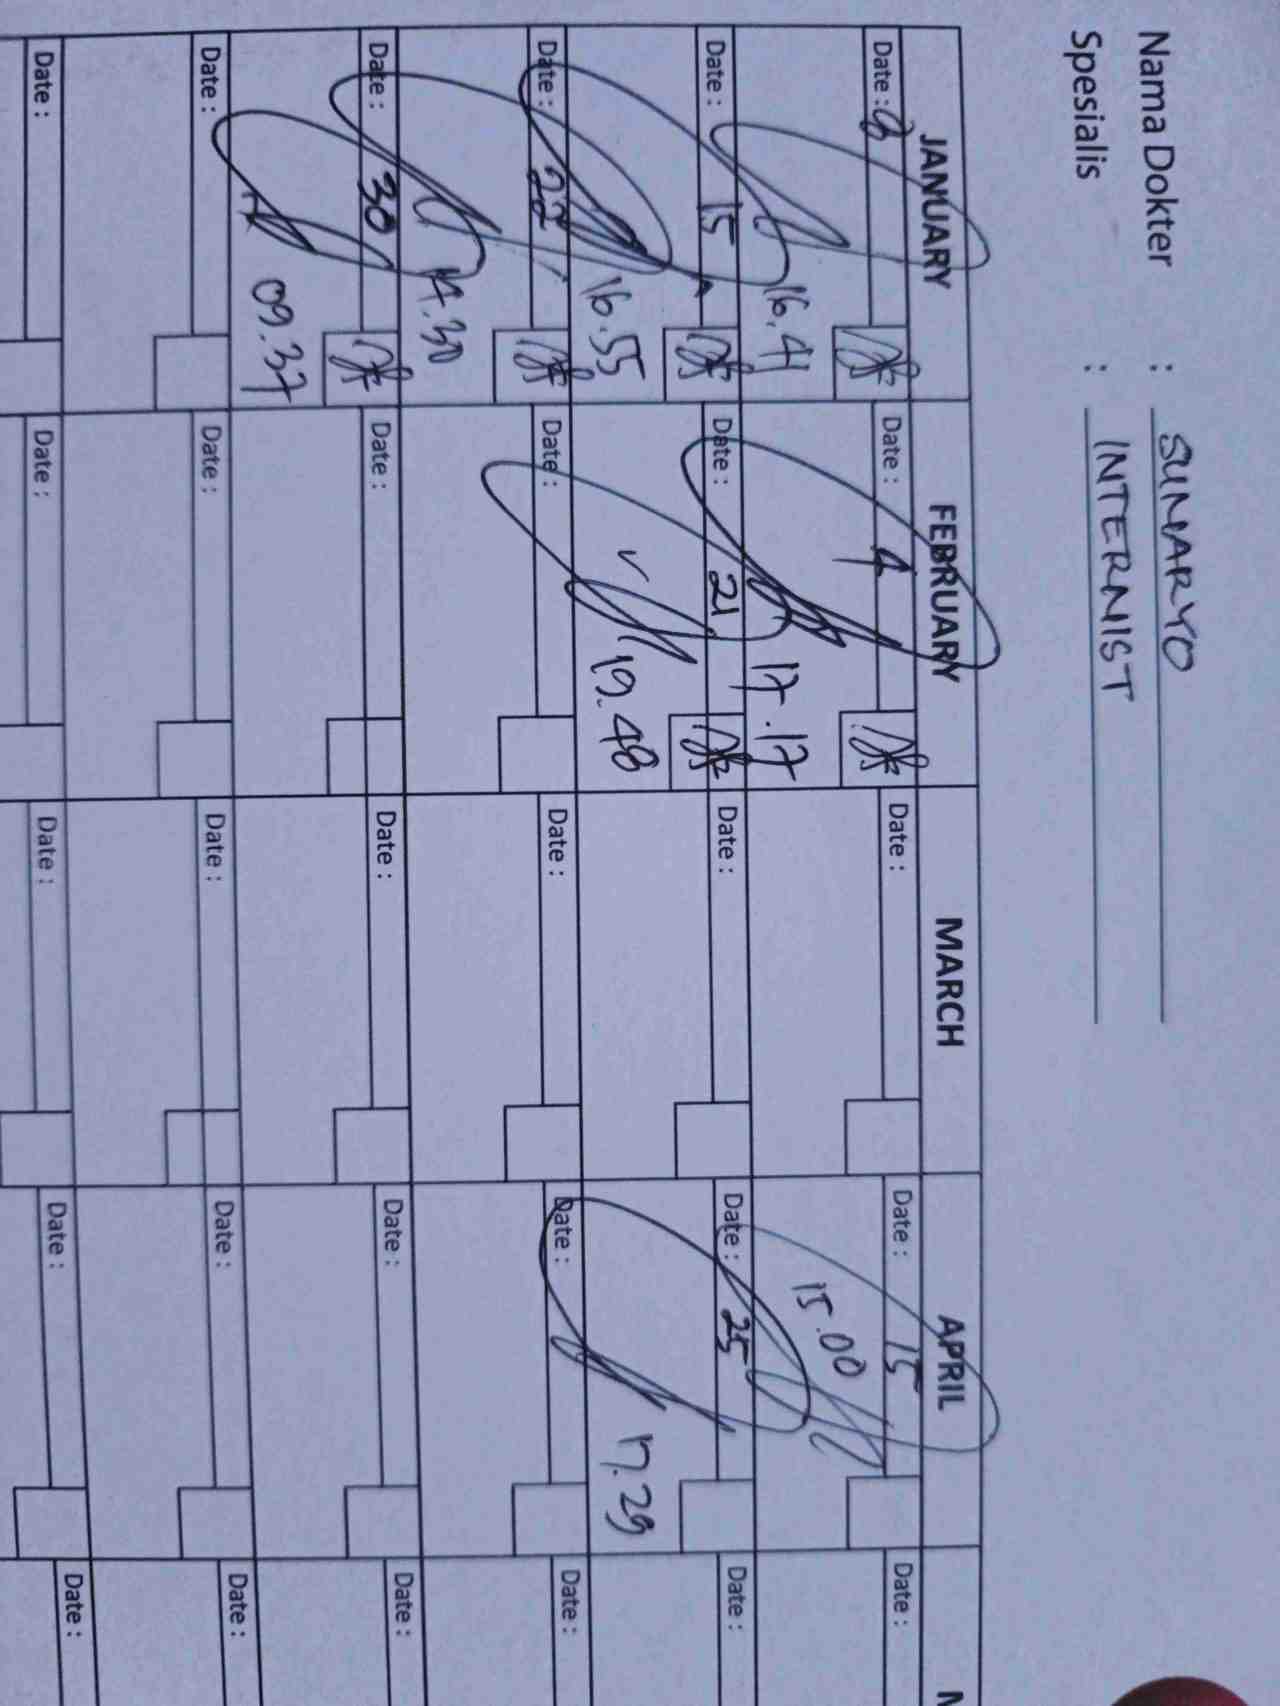 Nama Dokter : SUNARYO
Spesialis : INTERNIST
JANUARY FEBRUARY MARCH APRIL
Date : 8 Date : 4 Date : Date : 15 Date :
16.41 17.17 15.00
Date : 15 Date : 21 Date : Date : 25 Date :
16.55 19.48 17.29
Date : 22 Date : Date : Date : Date :
17.30
Date : 30 Date : Date : Date : Date :
09.37
Date : Date : Date : Date : Date :
Date : Date : Date : Date : Date :